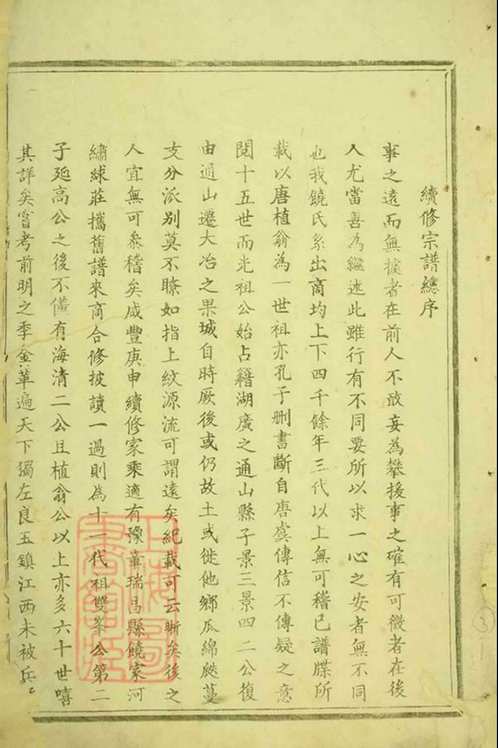 續修宗譜總序
事之遠而無據者在前人不敢妄為攀援事之確有可徵者在後
人尤當善為繼述此雖行有不同要所以求一心之安者無不同
也我饒氏系出商均上下四千餘年三代以上無可稽已譜牒所
載以唐植翁為一世祖亦孔子刪書斷自唐虞傳信不傳疑之意
閱十五世而光祖公始占籍湖廣之通山縣子景三景四二公復
由通山遷大冶之果城自時厥後或仍故土或徙他鄉瓜綿瓞蔓
支分派別莫不瞭如指上紋源流可謂遠矣紀載可云晰矣後之
人宜無可參稽矣咸豐庚申續修家乘適有豫章瑞昌縣饒家河
繡球莊攜舊譜來商合修披讀一過則為十一代祖雙峯公第二
子延高公之後不備有海清二公且植翁公以上亦多六十世嘻
其詳矣嘗考前明之季金革遍天下獨左良玉鎮江西未被兵